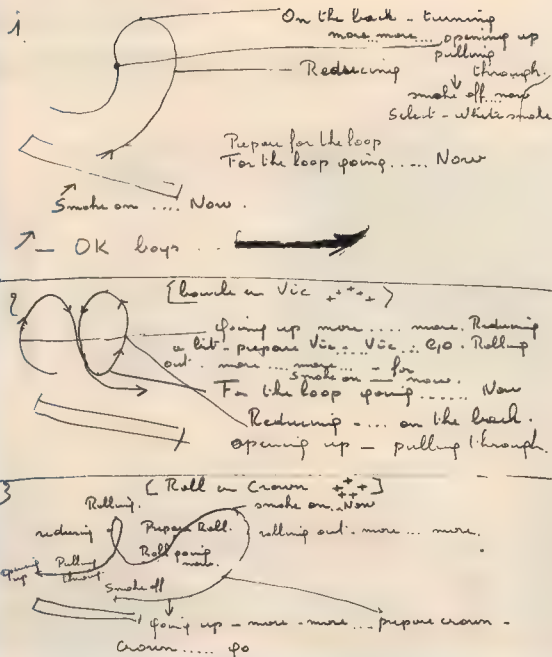 1.
On the back - turning
more... more.... opening up
pulling
through.
Reducing
smoke off... now
Select - White smoke
Prepare for the loop
For the loop going..... Now
Smoke on .... Now.
OK boys ...
2
[ Loop in Vic +++++ ]
going up more .... more. Reducing
a bit - prepare Vic - Vic... GO. Rolling
out - more .... more... - for
smoke on — now.
For the loop going..... Now
Reducing .... on the back.
opening up — pulling through.
3
[ Roll in Crown +++++ ]
Rolling.
smoke on.. Now
reducing
Prepare Roll.
rolling out - more ... more.
Roll going
now.
opening
up
Pulling
through
Smoke off
going up - more - more ... prepare crown -
Crown ..... go